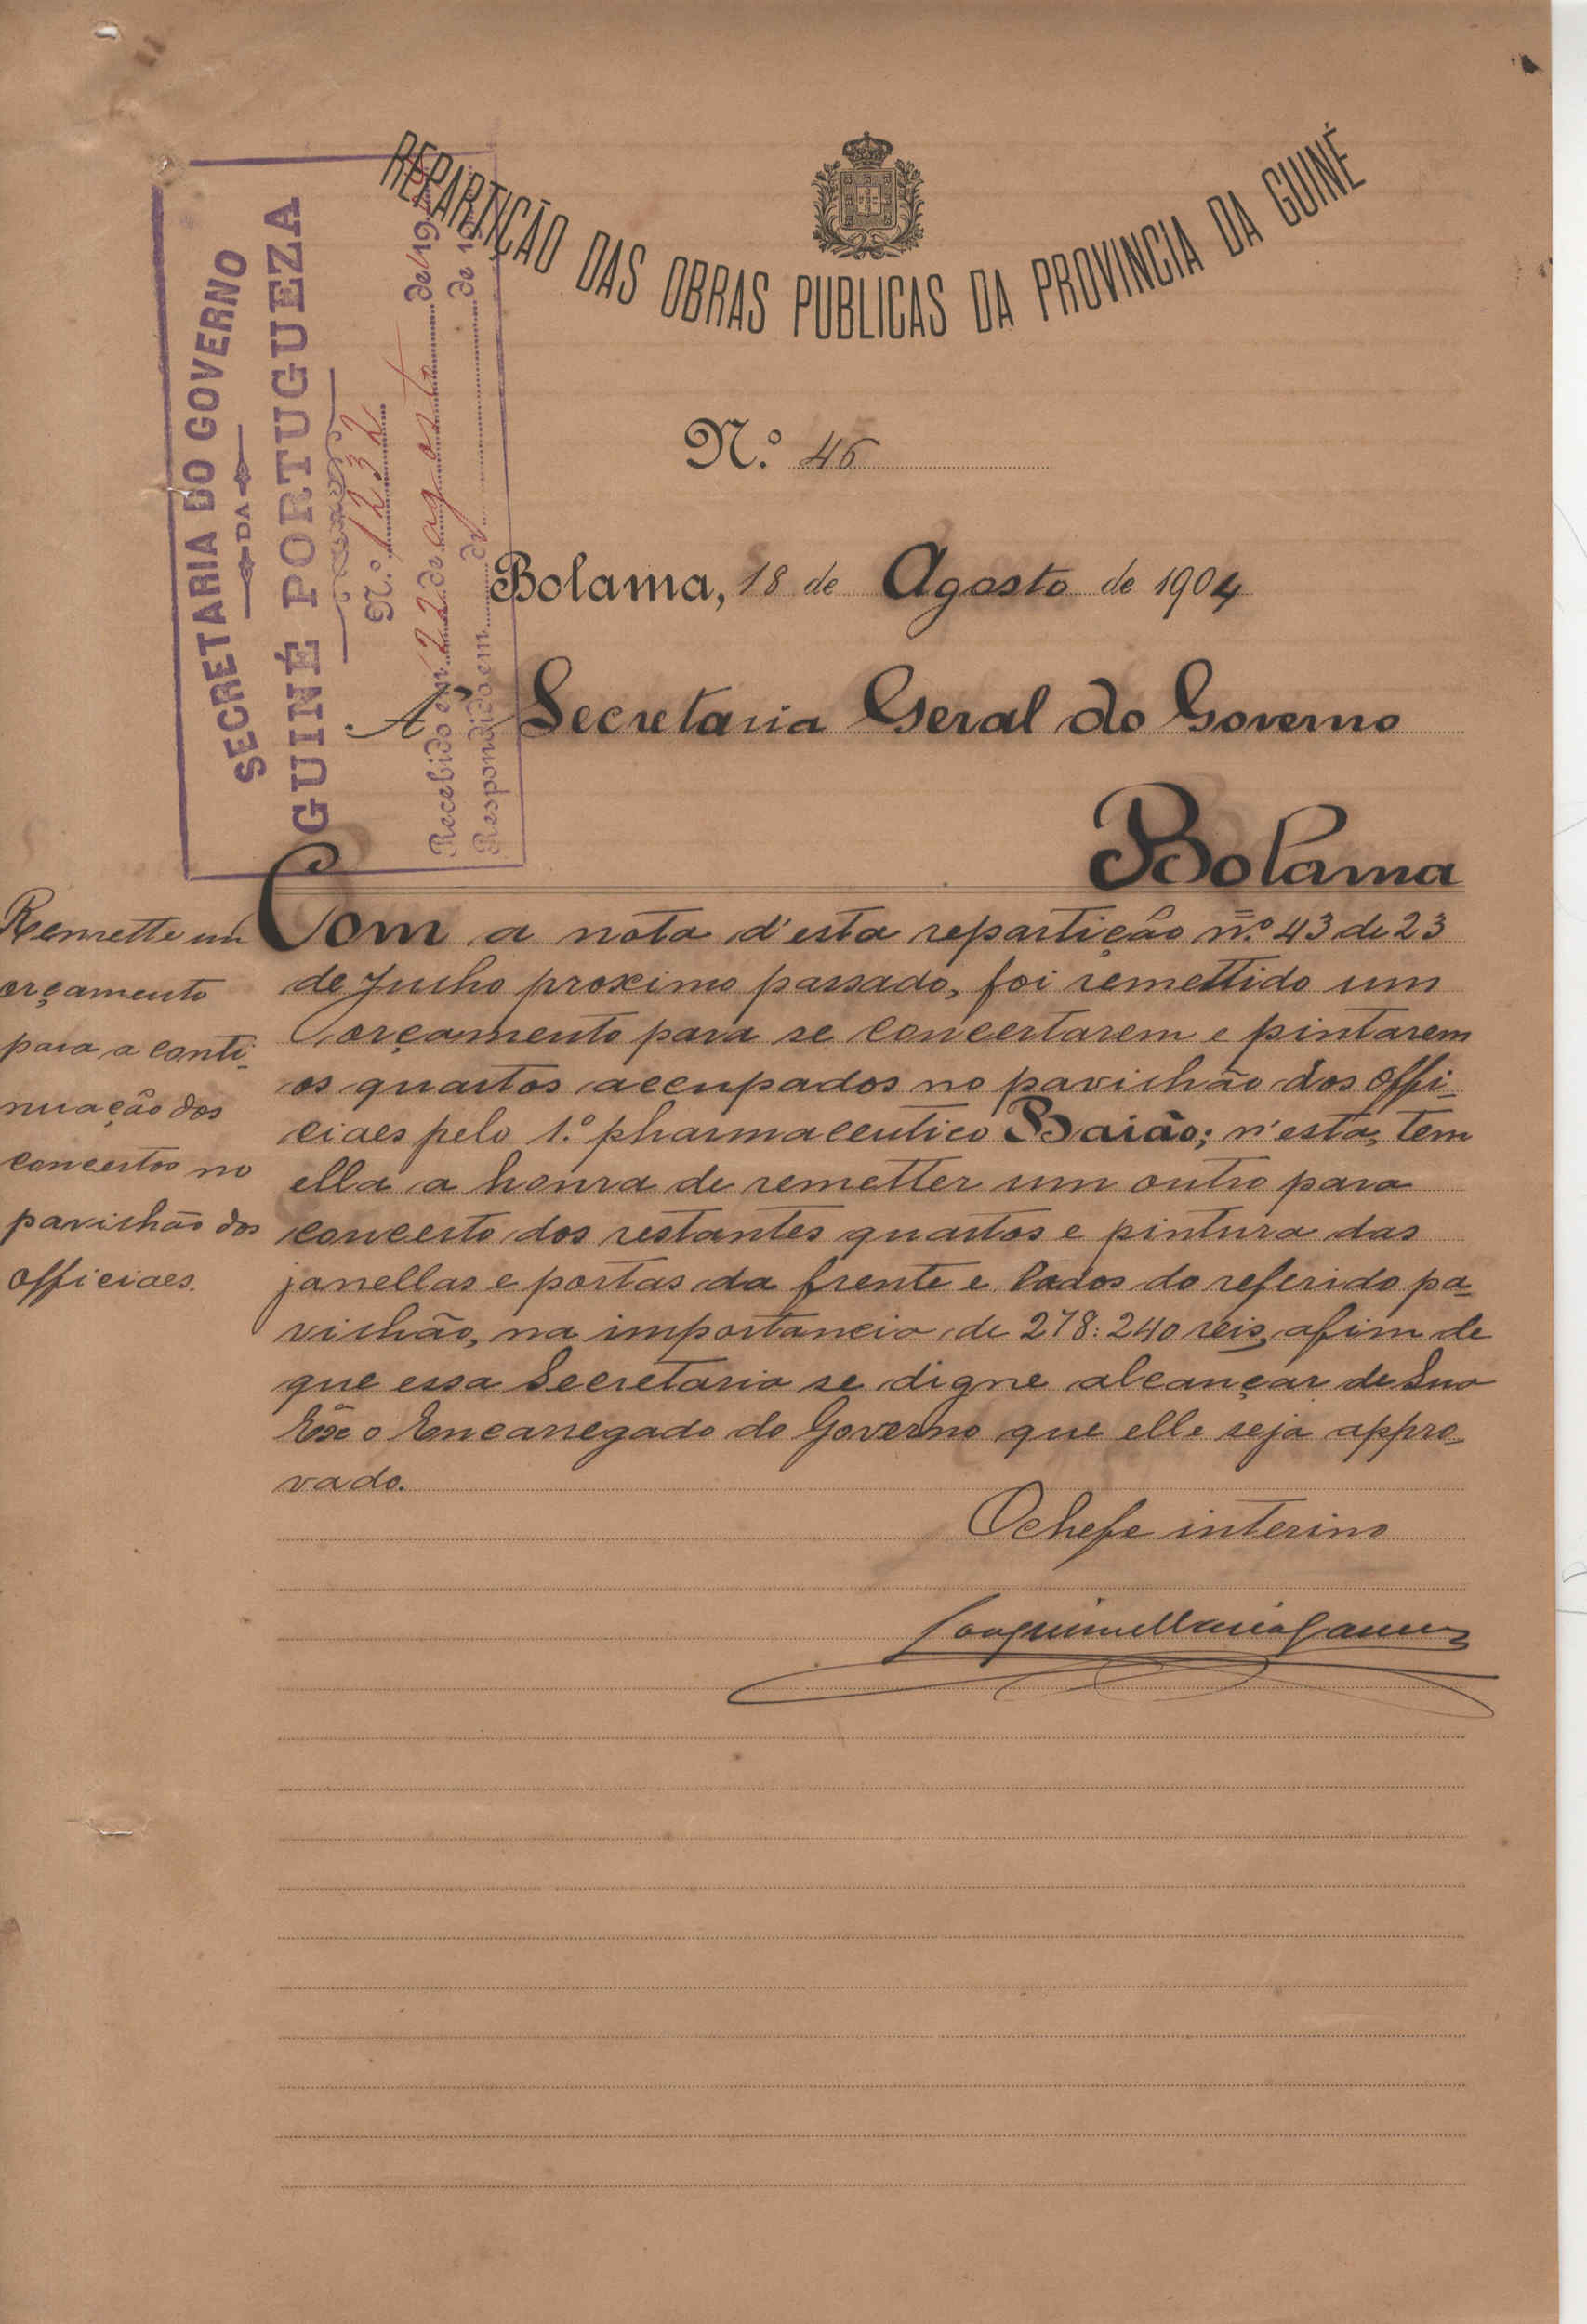 REPARTIÇÃO DAS OBRAS PUBLICAS DA PROVINCIA DA GUINÉ
SECRETARIA DO GOVERNO
DA
GUINÉ PORTUGUEZA
N.º 1232
Recebido em 22 de agosto de 190
Respondido em de de 190
N.º 46
Bolama, 18 de Agosto de 1904
A' Secretaria Geral do Governo
Bolama
Remette um
orçamento
para a conti-
nuação dos
concertos no
pavilhão dos
officiaes.
Com a nota d'esta repartição n.º 43 de 23
de Julho proximo passado, foi remettido um
orçamento para se concertarem e pintarem
os quartos accupados no pavilhão dos offi-
ciaes pelo 1.º pharmaceutico Baião; n'esta, tem
ella a honra de remetter um outro para
concerto dos restantes quartos e pintura das
janellas e portas da frente e lados do referido pa-
vilhão, na importancia de 278:240 reis, afim de
que essa Secretaria se digne alcançar de Sua
Exª o Encarregado do Governo que elle seja appro-
vado.
O chefe interino
Joaquim Maria